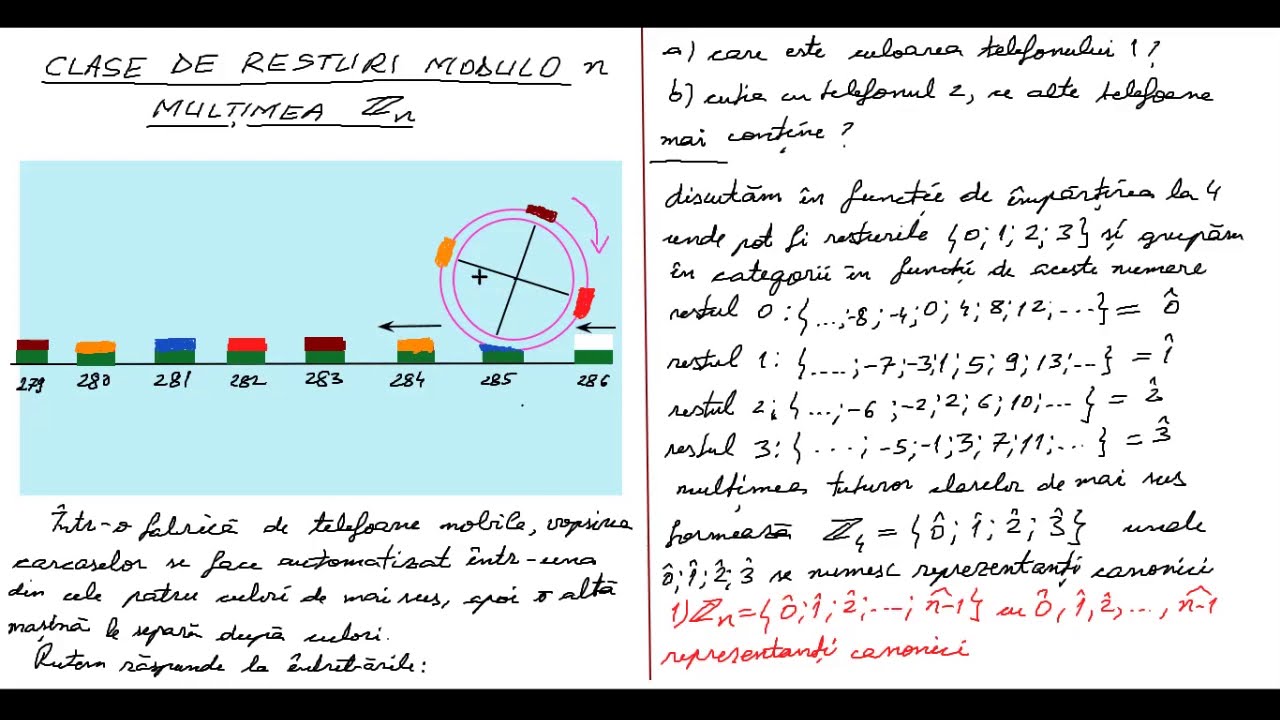 CLASE DE RESTURI MODULO n
MULȚIMEA ℤn
279 280 281 282 283 284 285 286
Într-o fabrică de telefoane mobile, vopsirea
carcaselor se face automatizat într-una
din cele patru culori de mai sus, apoi o altă
mașină le separă după culori.
Putem răspunde la întrebările:
a) care este culoarea telefonului 1?
b) cutia cu telefonul 2, ce alte telefoane
mai conține?
discutăm în funcție de împărțirea la 4
unde pot fi resturile {0; 1; 2; 3} și grupăm
în categorii în funcți de aceste numere
restul 0: {...; -8; -4; 0; 4; 8; 12; ...} = 0̂
restul 1: {....; -7; -3; 1; 5; 9; 13; ...} = 1̂
restul 2: {...; -6; -2; 2; 6; 10; ...} = 2̂
restul 3: {...; -5; -1; 3; 7; 11; ...} = 3̂
mulțimea tuturor claselor de mai sus
formează ℤ4 = {0̂; 1̂; 2̂; 3̂} unde
0̂; 1̂; 2̂; 3̂ se numesc reprezentanți canonici
1) ℤn = {0̂; 1̂; 2̂; ...; n-1̂} cu 0̂, 1̂, 2̂, ..., n-1̂
reprezentanți canonici